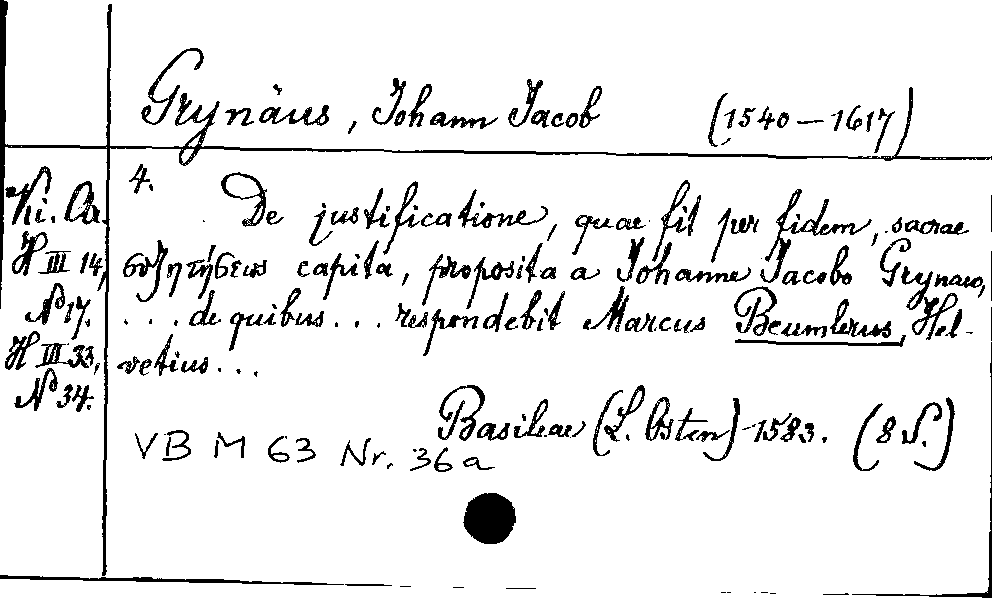 Grynäus, Johann Jacob (1540–1617)
Ki. Ar.
H III 14,
No 17.
H III 33,
No 34.
4. De justificatione, quae fit per fidem, sacrae
συζητήσεως capita, proposita a Johanne Jacobo Grynaeo,
... de quibus ... respondebit Marcus Beumlerus, Hel-
vetius ...
Basileae (L. Osten) 1583. (8 S.)
VB M 63 Nr. 36a